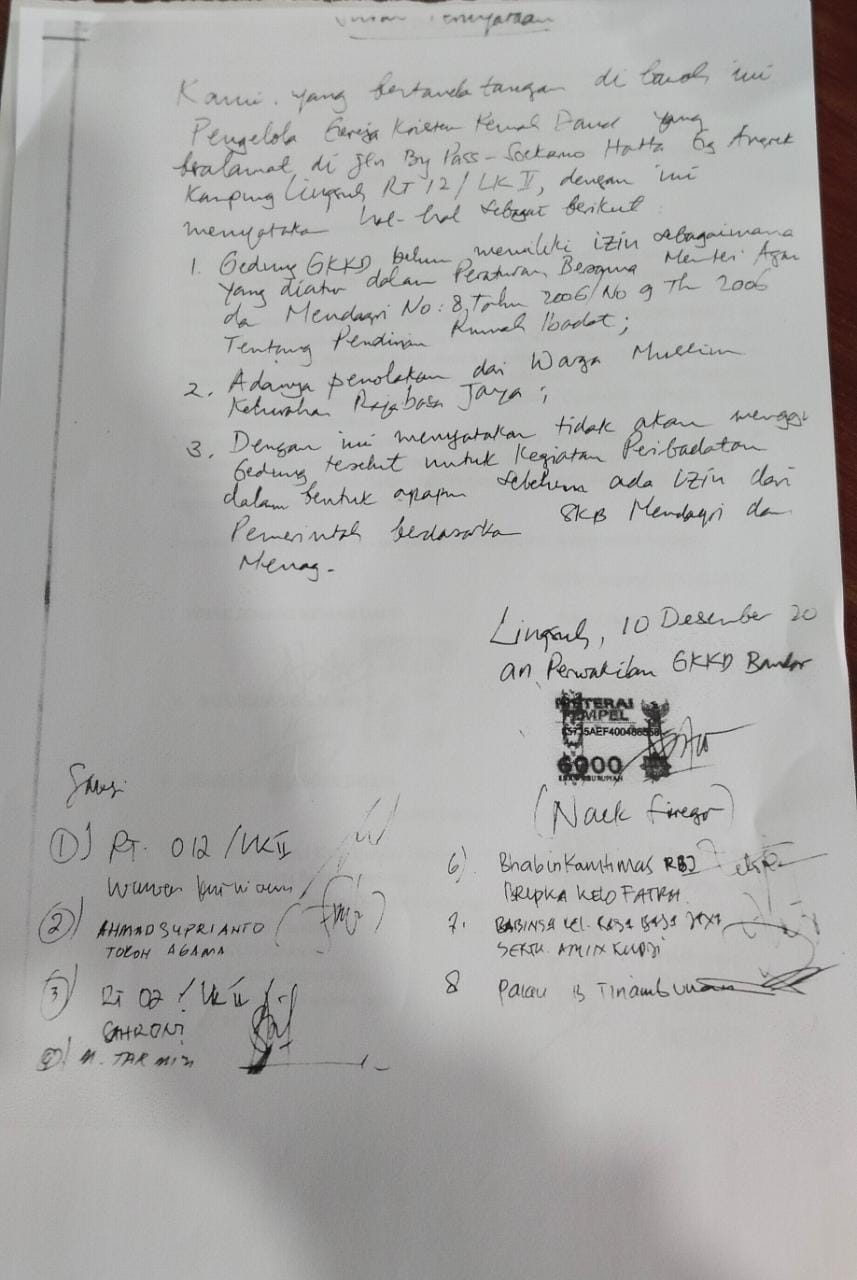 Surat Pernyataan
Kami. yang bertanda tangan di bawah ini
Pengelola Gereja Kristen Kemah Daud yang
bralamat di Jln By Pass-Soekarno Hatta Gg Anggrek
Kampung Lingsuh RT 12/LK II, dengan ini
menyatakan hal-hal sebagai berikut
1. Gedung GKKD belum memiliki izin sebagaimana
yang diatur dalam Peraturan Bersama Menteri Agam
da Mendagri No: 8, Tahun 2006/No 9 Th 2006
Tentang Pendirian Rumah Ibadat;
2. Adanya penolakan dari Warga Muslim
Kelurahan Rajabasa Jaya;
3. Dengan ini menyatakan tidak akan menggu
Gedung tersebut untuk Kegiatan Peribadatan
dalam bentuk apapun sebelum ada izin dari
Pemerintah berdasarka SKB Mendagri dan
Menag.
Lingsuh, 10 Desember 20
an. Perwakilan GKKD Bandar
METERAI
TEMPEL
6000
(Naek Siregar)
Saksi
1) RT. 012/LK II
Wawan Kurniawan
2) AHMAD SUPRIANTO
TOKOH AGAMA
3) RT 02 / LK II
SAHRONI
4) M. TARMIZI
6) Bhabinkamtimas RBJ
BRIPKA
7. BABINSA KEL. RAJA BASA JAYA
SERTU.
8 Parau B Tinambunan